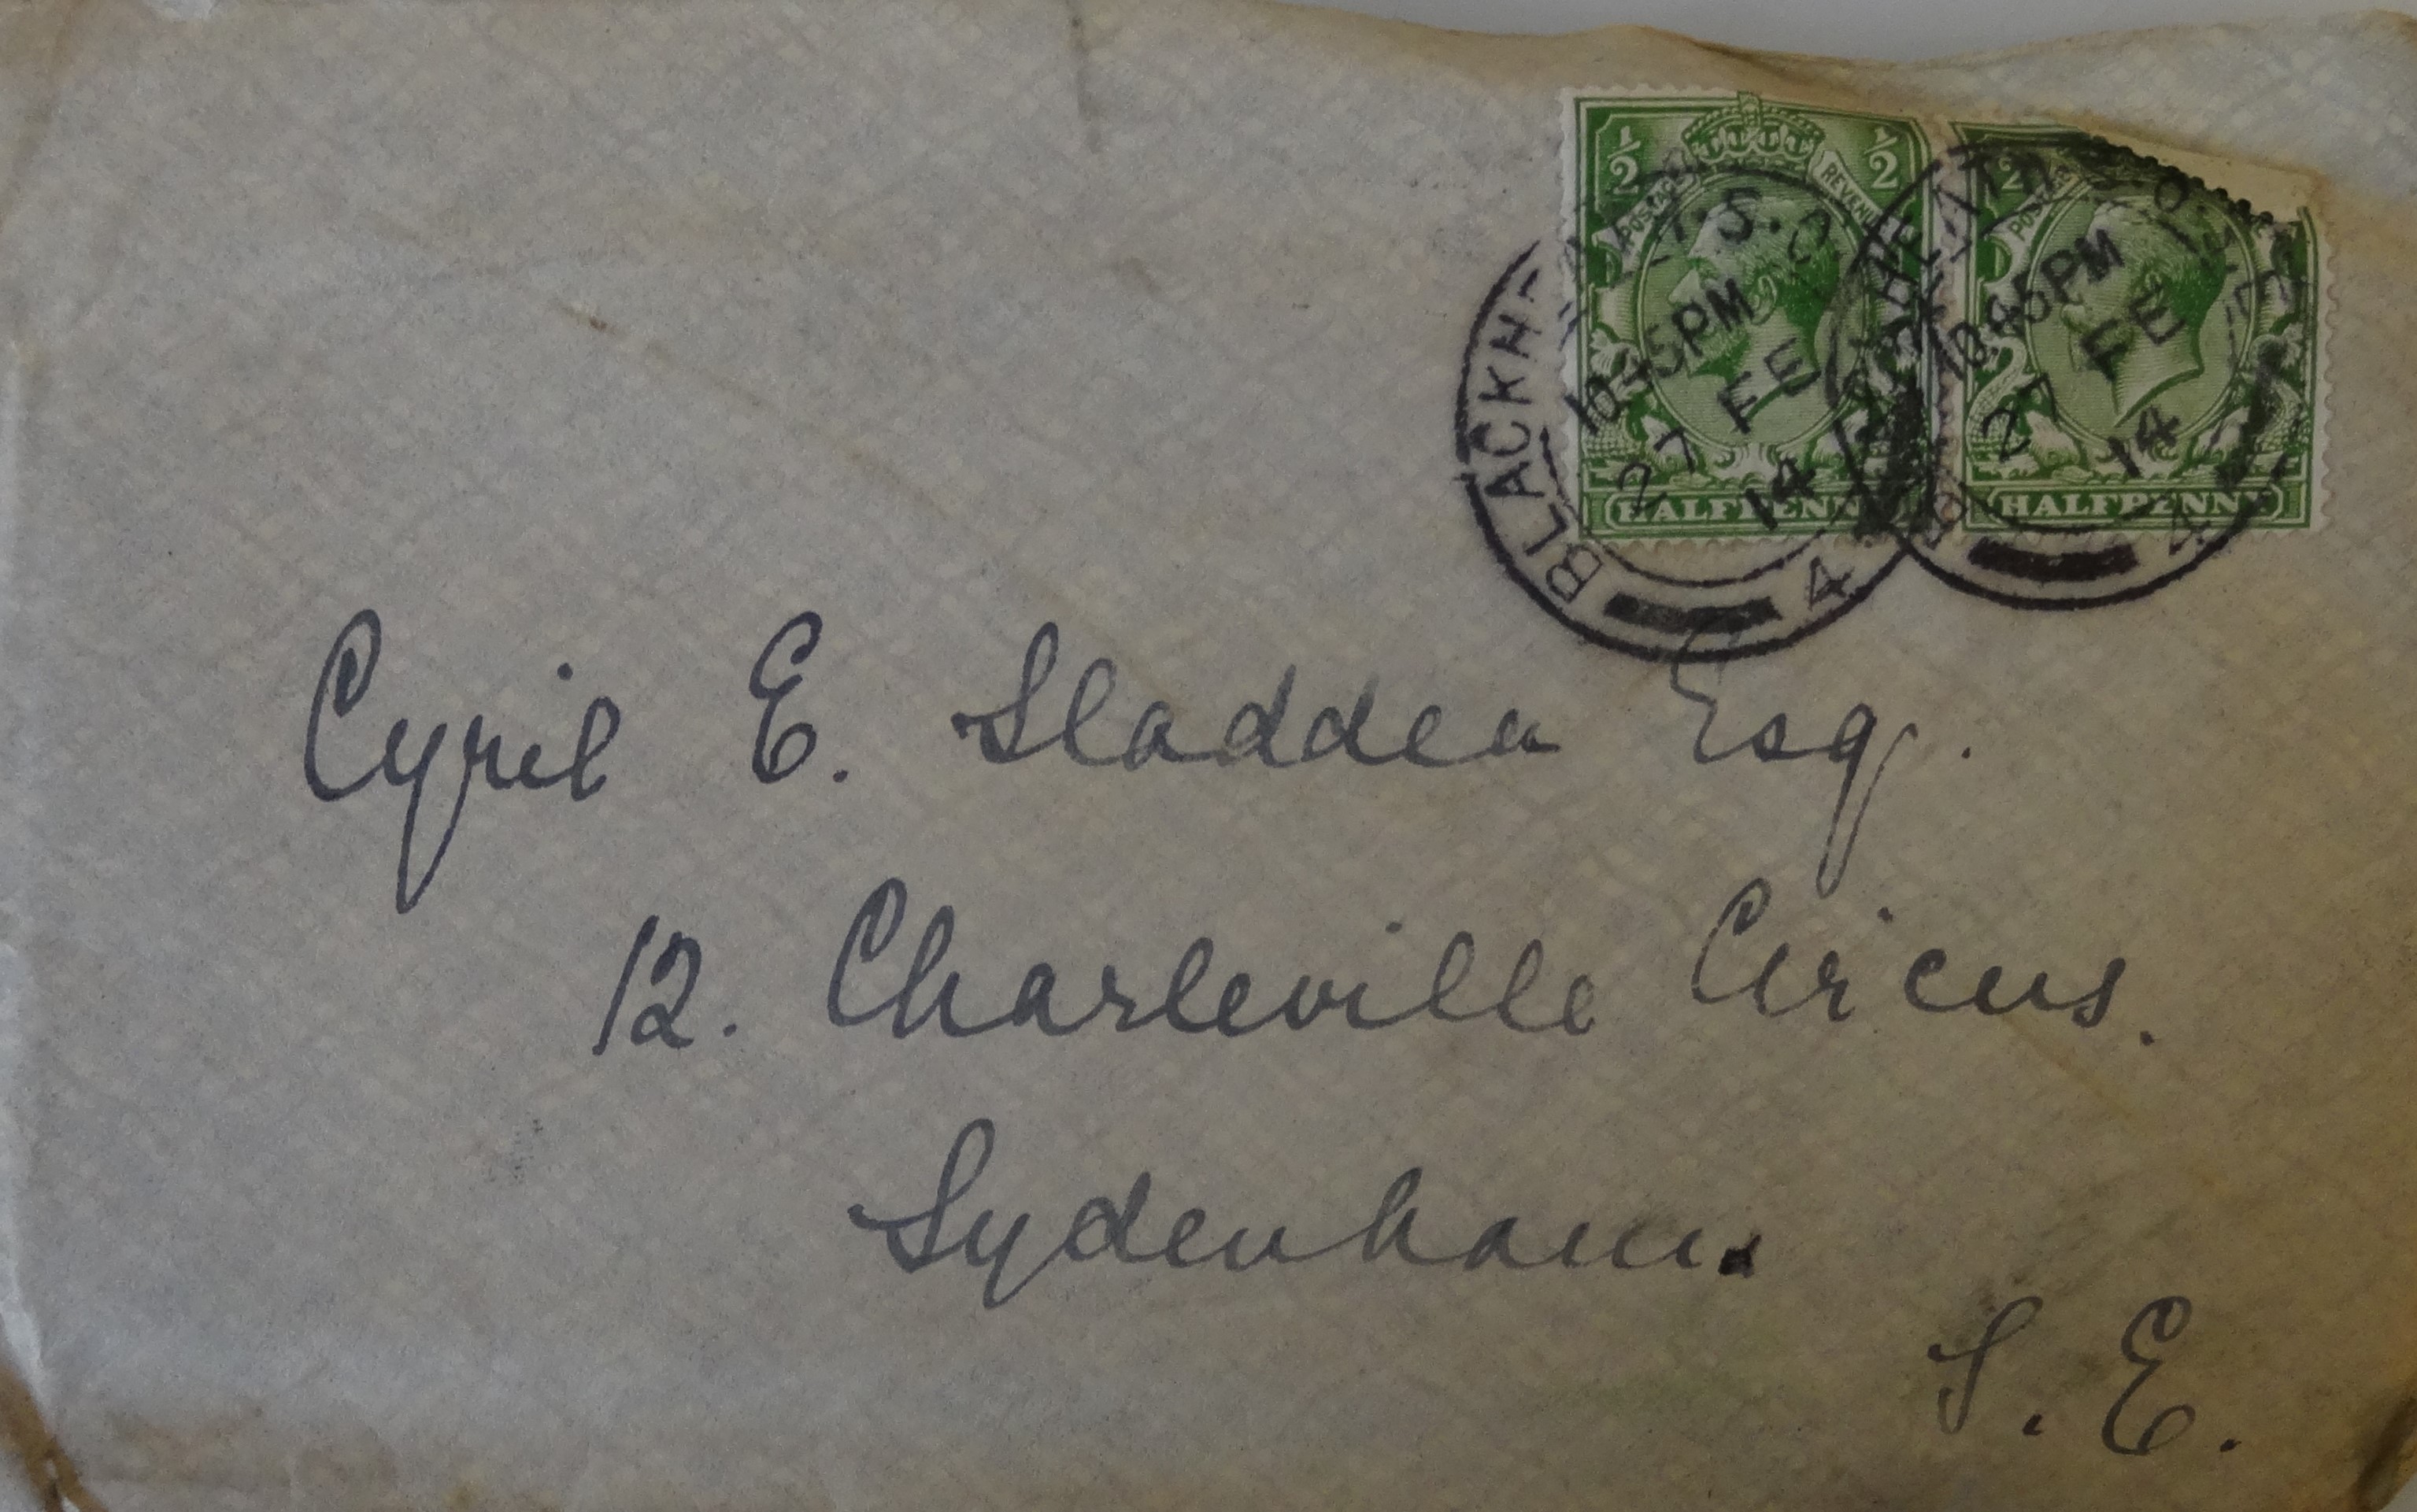 ½ ½
POSTAGE REVENUE
HALFPENNY
½
HALFPENNY
BLACKHEATH S.O. S.E.
10.45PM
27 FE
14
4
10.45PM
27 FE
14
4
Cyril E. Sladden Esq.
12. Charleville Circus.
Sydenham.
S. E.